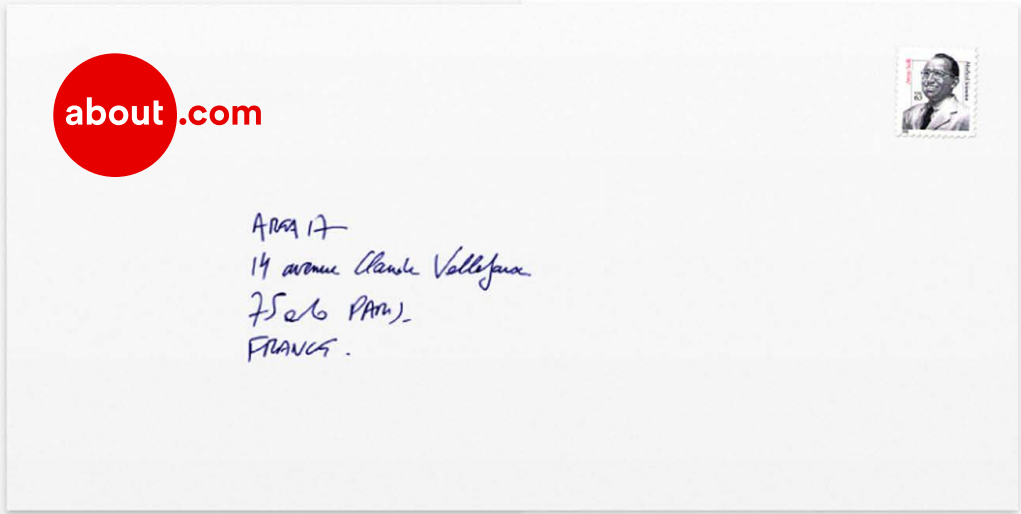 about.com
AREA 17
14 avenue Claude Vellefaux
75010 PARIS
FRANCE.